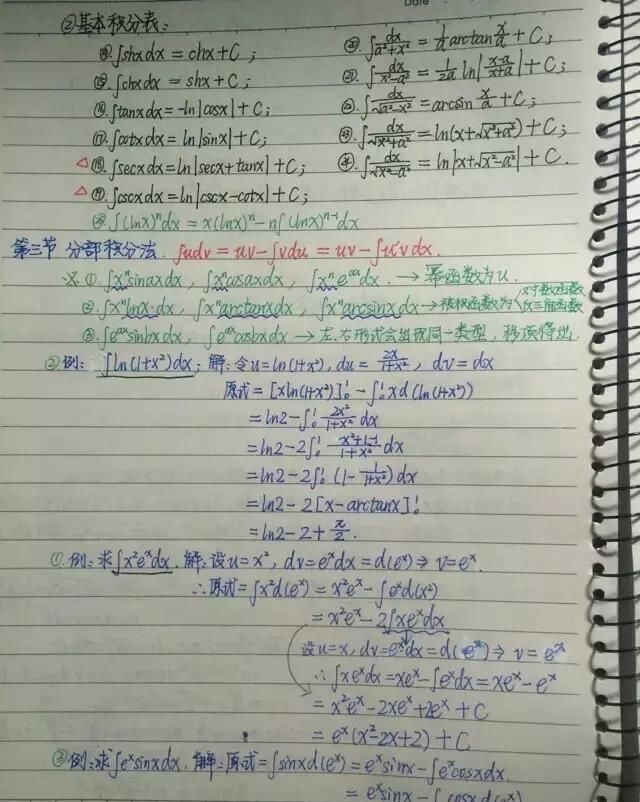 Date
②基本积分表:
⑭.∫shxdx = chx+C ;
⑮.∫chxdx = shx+C ;
⑯.∫tanxdx = -ln|cosx|+C ;
⑰.∫cotxdx = ln|sinx|+C ;
△⑱.∫secxdx = ln|secx+tanx|+C ;
△⑲.∫cscxdx = ln|cscx-cotx|+C ;
⑳.∫dx/(a²+x²) = 1/a arctan x/a + C ;
㉑.∫dx/(x²-a²) = 1/2a ln|(x-a)/(x+a)|+C ;
㉒.∫dx/√(a²-x²) = arcsin x/a + C ;
㉓.∫dx/√(x²+a²) = ln(x+√(x²+a²))+C ;
㉔.∫dx/√(x²-a²) = ln|x+√(x²-a²)|+C .
∫(lnx)ⁿdx = x(lnx)ⁿ - n∫(lnx)ⁿ⁻¹dx
第三节 分部积分法. ∫udv = uv-∫vdu = uv-∫u'vdx.
※ ①.∫xⁿsinaxdx, ∫xⁿcosaxdx, ∫xⁿeᵃˣdx. → 幂函数为u.
②.∫xⁿlnxdx, ∫xⁿarctanxdx, ∫xⁿarcsinxdx → 函数为〈对数函数 反三角函数
③.∫eᵃˣsinbxdx, ∫eᵃˣcosbxdx → 左、右形式会出现同一类型, 移项得出.
②例: ∫ln(1+x²)dx; 解: 令u=ln(1+x²), du = 2x/(1+x²), dv=dx
原式 = [xln(1+x²)]₀¹ - ∫₀¹xd(ln(1+x²))
= ln2-∫₀¹ 2x²/(1+x²) dx
= ln2-2∫₀¹ (x²+1-1)/(1+x²) dx
= ln2-2∫₀¹ (1- 1/(1+x²))dx
= ln2-2[x-arctanx]₀¹
= ln2-2+π/2.
①.例: 求∫x²eˣdx. 解: 设u=x², dv=eˣdx=d(eˣ)⇒ v=eˣ.
∴原式=∫x²d(eˣ) = x²eˣ-∫eˣd(x²)
= x²eˣ-2∫xeˣdx
设u=x, dv=eˣdx=d(eˣ)⇒ v=eˣ
∴∫xeˣdx=xeˣ-∫eˣdx=xeˣ-eˣ
= x²eˣ-2xeˣ+2eˣ+C
= eˣ(x²-2x+2)+C
③例: 求∫eˣsinxdx. 解: 原式=∫sinxd(eˣ) = eˣsinx-∫eˣcosxdx.
= eˣsinx-∫cosxd(eˣ)